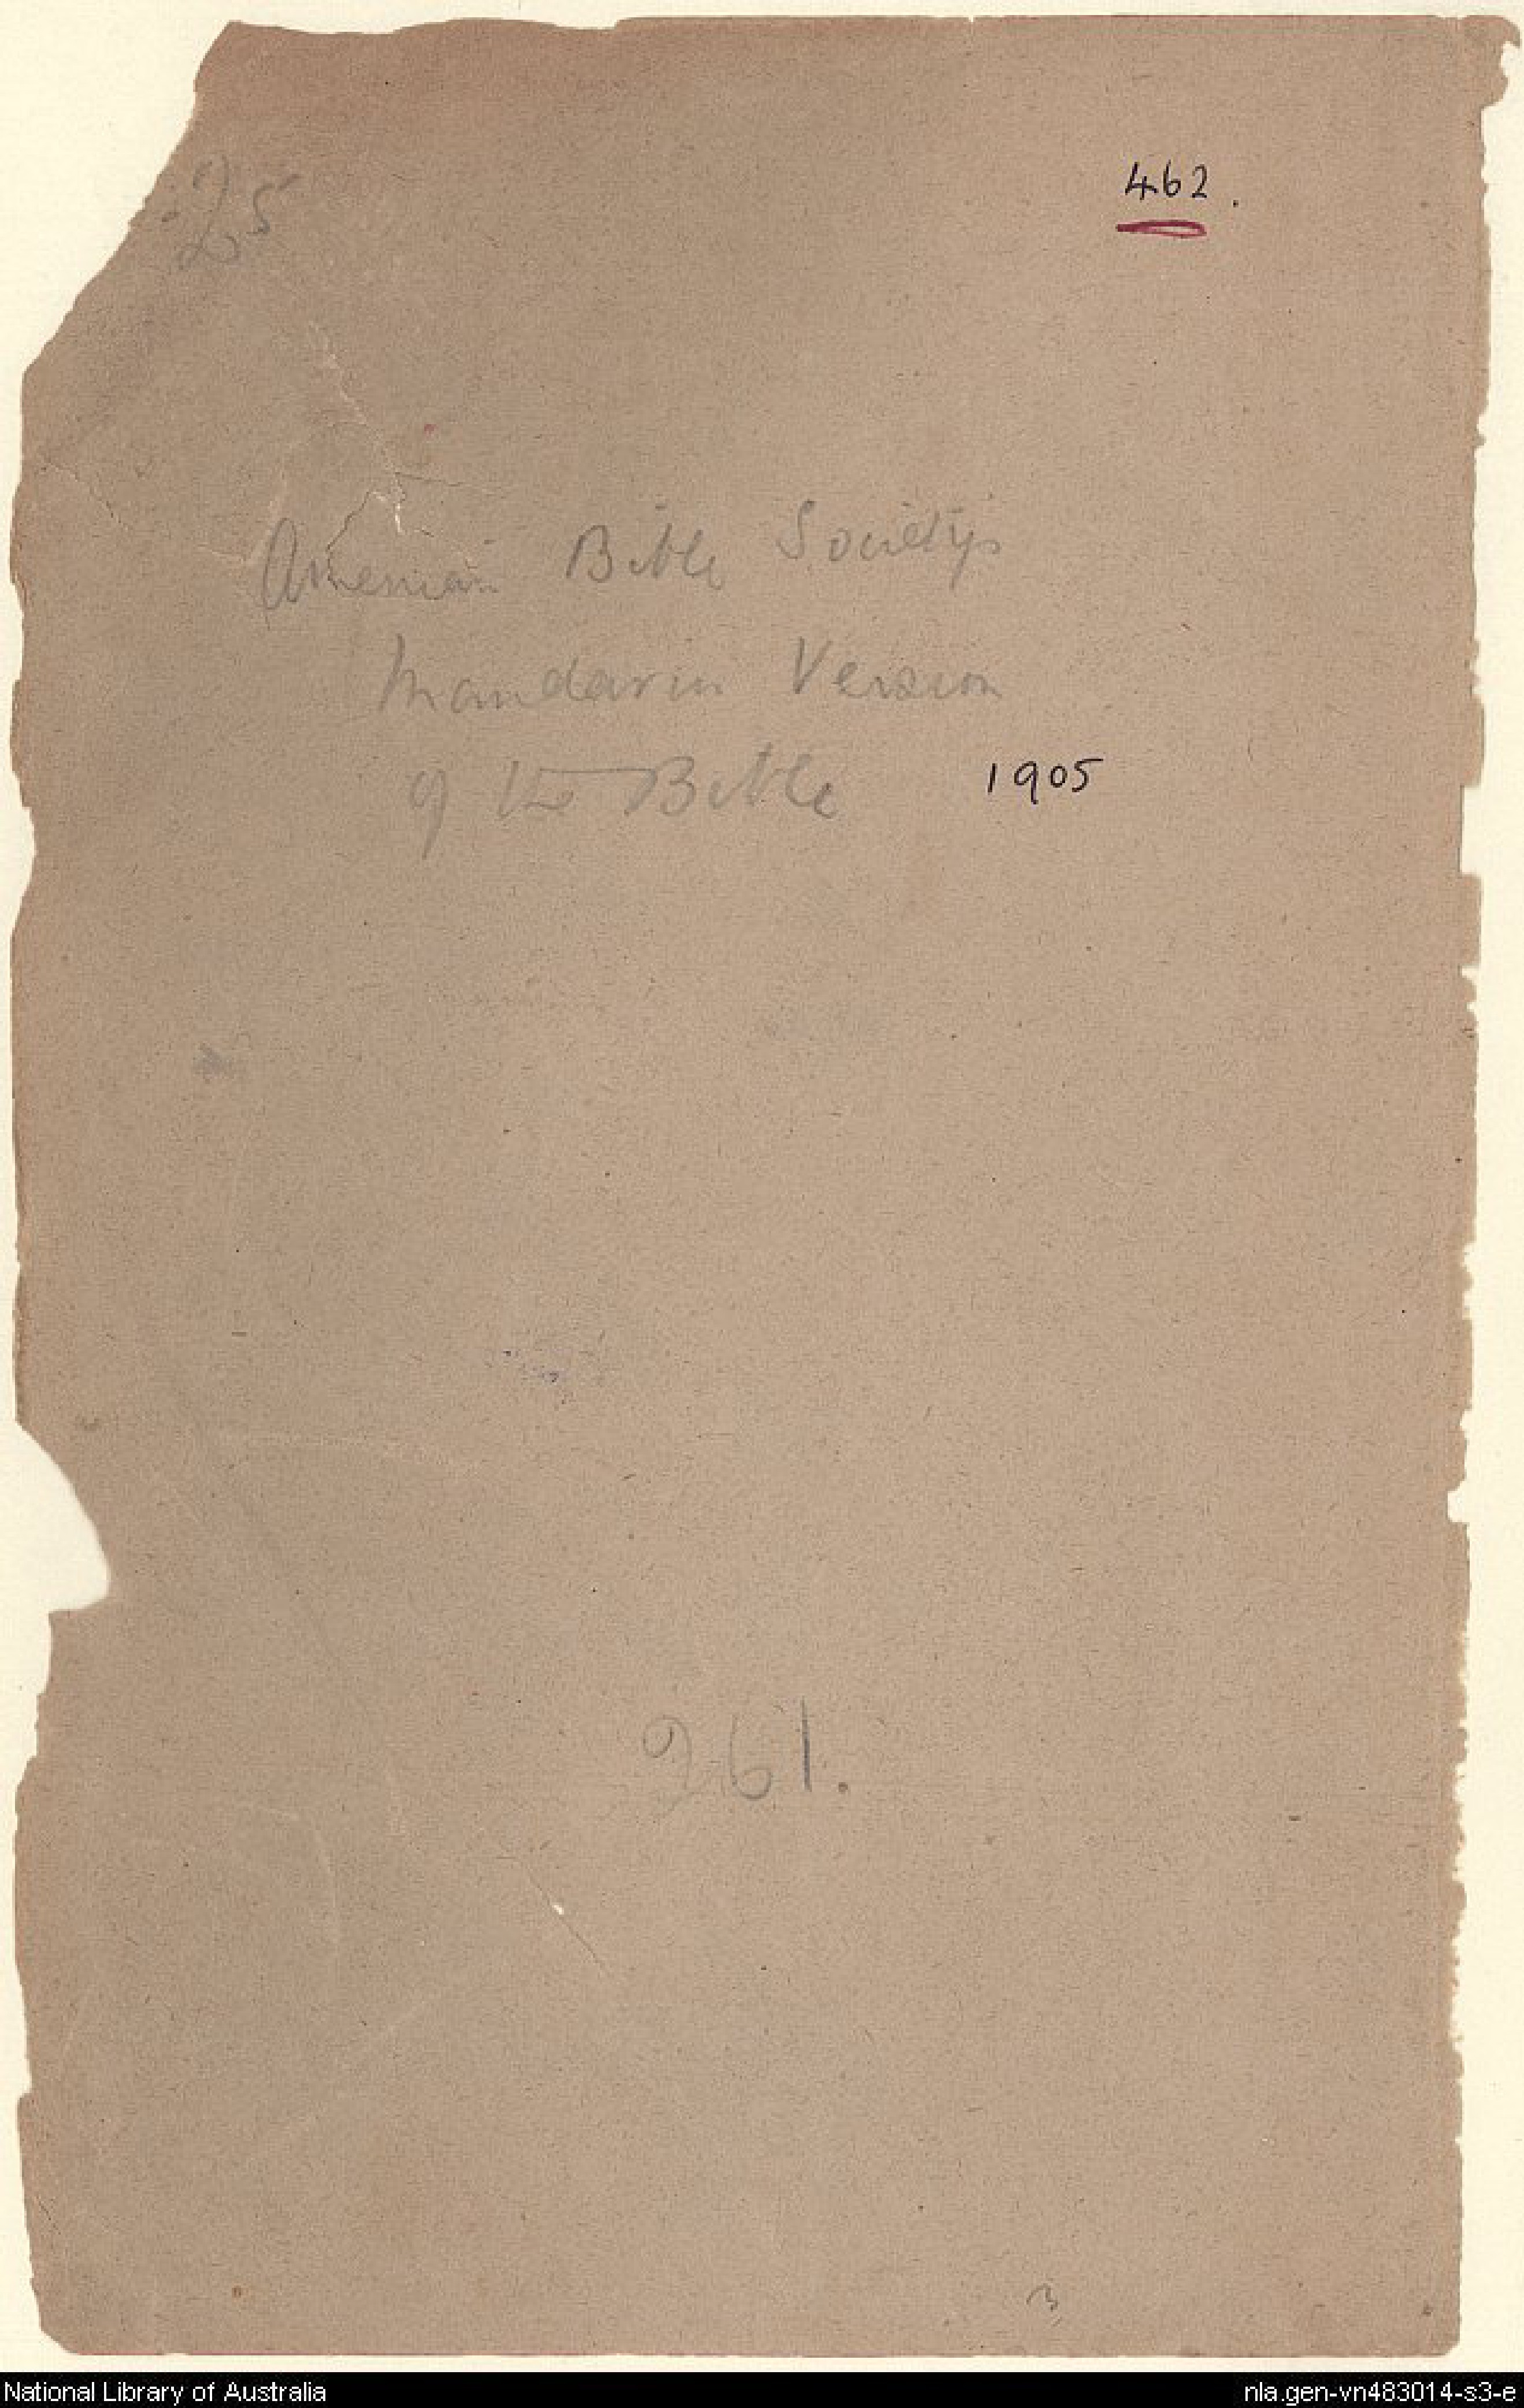 25
462.
American Bible Society's
Mandarin Version
of the Bible 1905
261.
3
National Library of Australia nla.gen-vn483014-s3-e